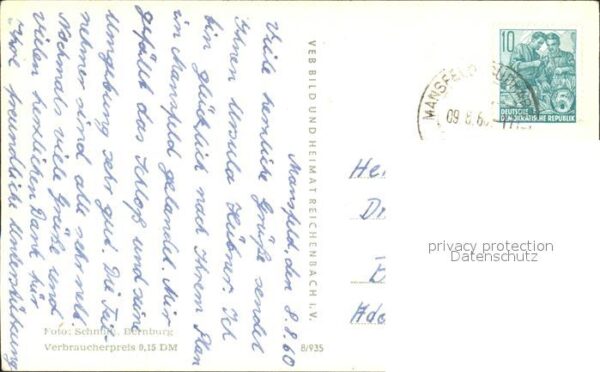 Mansfeld, den 8.8.60
Viele herzliche Grüße sendet
Ihnen Ursula Hübner. Ich
bin glücklich nach Ihrem Plan
in Mansfeld gelandet. Mir
gefällt das Schloß und seine
Umgebung sehr gut. Die Teil-
nehmer sind alle sehr nett.
Nochmals viele Grüße und
vielen herzlichen Dank für
Ihre freundliche Unterstützung
Foto: Bernburg
Verbraucherpreis 0,15 DM
8/935
VEB BILD UND HEIMAT REICHENBACH i. V.
10
DEUTSCHE
DEMOKRATISCHE REPUBLIK
MANSFELD
09.8.60
privacy protection
Datenschutz